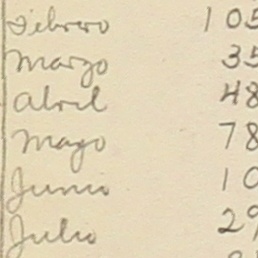 Febrero 105
Marzo 35
Abril 48
Mayo 78
Junio 10
Julio 29